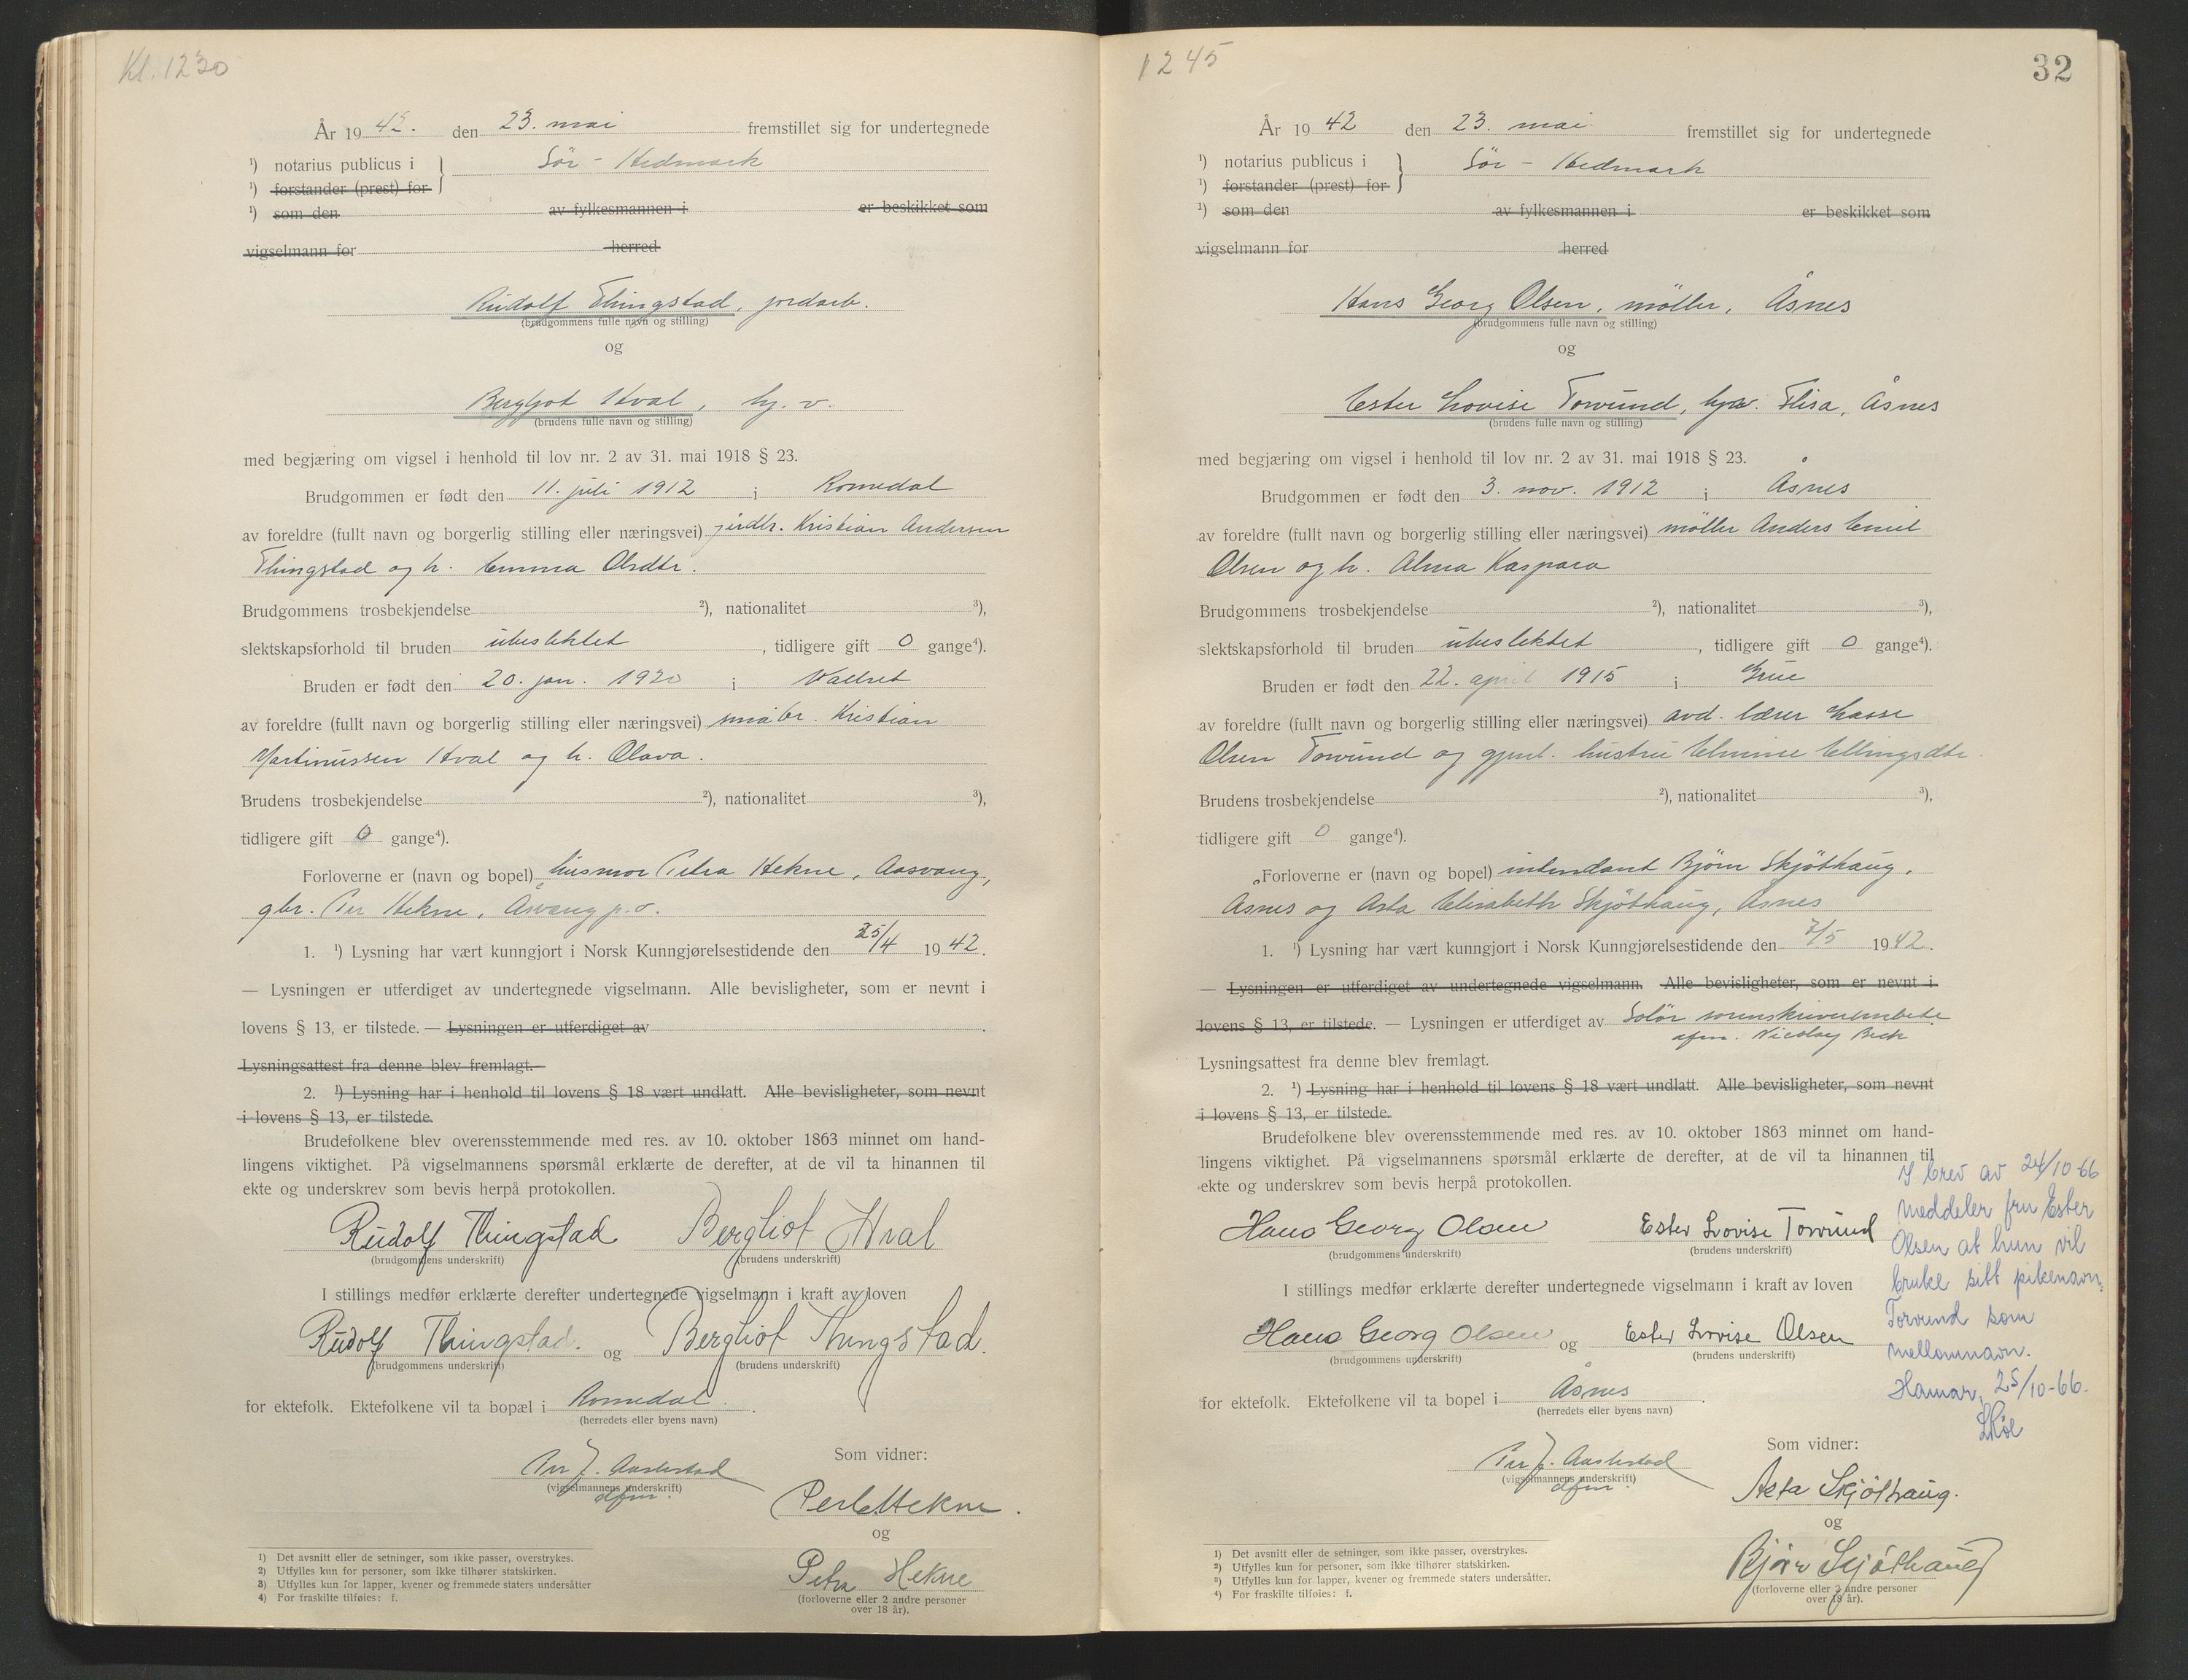 Kl. 1230
År 1942. den 23. mai fremstillet sig for undertegnede
¹) notarius publicus i } Sör - Hedmark
¹) forstander (prest) for
¹) som den av fylkesmannen i er beskikket som
vigselmann for herred
Rudolf Thingstad, jordarb.
(brudgommens fulle navn og stilling)
og
Bergljot Hval, hj. v.
(brudens fulle navn og stilling)
med begjæring om vigsel i henhold til lov nr. 2 av 31. mai 1918 § 23.
Brudgommen er født den 11. juli 1912 i Romedal
av foreldre (fullt navn og borgerlig stilling eller næringsvei) Kristian Andersen
Thingstad og h. Emma Olsdtr.
Brudgommens trosbekjendelse ²), nationalitet ³),
slektskapsforhold til bruden ubeslektet, tidligere gift 0 gange⁴).
Bruden er født den 20. jan. 1920 i Vallset
av foreldre (fullt navn og borgerlig stilling eller næringsvei) småbr. Kristian
Martinussen Hval og h. Olava.
Brudens trosbekjendelse ²), nationalitet ³),
tidligere gift 0 gange⁴).
Forloverne er (navn og bopel) husmor Petra Hekne, Aasvang,
gbr. Per Hekne, Åsvang p.o.
1. ¹) Lysning har vært kunngjort i Norsk Kunngjørelsestidende den 25/4 1942.
— Lysningen er utferdiget av undertegnede vigselmann. Alle bevisligheter, som er nevnt i
lovens § 13, er tilstede. — Lysningen er utferdiget av .
Lysningsattest fra denne blev fremlagt.
2. ¹) Lysning har i henhold til lovens § 18 vært undlatt. Alle bevisligheter, som nevnt
i lovens § 13, er tilstede.
Brudefolkene blev overensstemmende med res. av 10. oktober 1863 minnet om hand-
lingens viktighet. På vigselmannens spørsmål erklærte de derefter, at de vil ta hinannen til
ekte og underskrev som bevis herpå protokollen.
Rudolf Thingstad Bergliot Hval
(brudgommens underskrift) (brudens underskrift)
I stillings medfør erklærte derefter undertegnede vigselmann i kraft av loven
Rudolf Thingstad. og Bergliot Thingstad.
(brudgommens underskrift) (brudens underskrift)
for ektefolk. Ektefolkene vil ta bopæl i Romedal.
(herredets eller byens navn)
Som vidner:
Per J. Aaslestad
(vigselmannens underskrift)
dfm.
Per Hekne.
og
Petra Hekne
(forloverne eller 2 andre personer
over 18 år).
1) Det avsnitt eller de setninger, som ikke passer, overstrykes.
2) Utfylles kun for personer, som ikke tilhører statskirken.
3) Utfylles kun for lapper, kvener og fremmede staters undersåtter
4) For fraskilte tilføies: f.
1245
32
År 1942 den 23. mai fremstillet sig for undertegnede
¹) notarius publicus i } Sör - Hedmark
¹) forstander (prest) for
¹) som den av fylkesmannen i er beskikket som
vigselmann for herred
Hans Georg Olsen, møller, Åsnes
(brudgommens fulle navn og stilling)
og
Ester Lovise Torvund, hj.v. Flisa, Åsnes
(brudens fulle navn og stilling)
med begjæring om vigsel i henhold til lov nr. 2 av 31. mai 1918 § 23.
Brudgommen er født den 3. nov. 1912 i Åsnes
av foreldre (fullt navn og borgerlig stilling eller næringsvei) møller Anders Emil
Olsen og h. Alma Kaspara
Brudgommens trosbekjendelse ²), nationalitet ³),
slektskapsforhold til bruden ubeslektet, tidligere gift 0 gange⁴).
Bruden er født den 22. april 1915 i Grue
av foreldre (fullt navn og borgerlig stilling eller næringsvei) avd. lærer Lasse
Olsen Torvund og gjenl. hustru Elmine Ellingsdtr.
Brudens trosbekjendelse ²), nationalitet ³),
tidligere gift 0 gange⁴).
Forloverne er (navn og bopel) intendant Bjørn Skjøthaug,
Åsnes og Asta Elisabeth Skjøthaug, Åsnes
1. ¹) Lysning har vært kunngjort i Norsk Kunngjørelsestidende den 7/5 1942.
— Lysningen er utferdiget av undertegnede vigselmann. Alle bevisligheter, som er nevnt i
lovens § 13, er tilstede. — Lysningen er utferdiget av Solør sorenskriverembete
dfm. Nicolay Beck
Lysningsattest fra denne blev fremlagt.
2. ¹) Lysning har i henhold til lovens § 18 vært undlatt. Alle bevisligheter, som nevnt
i lovens § 13, er tilstede.
Brudefolkene blev overensstemmende med res. av 10. oktober 1863 minnet om hand-
lingens viktighet. På vigselmannens spørsmål erklærte de derefter, at de vil ta hinannen til
ekte og underskrev som bevis herpå protokollen.
Hans Georg Olsen Ester Lovise Torvund
(brudgommens underskrift) (brudens underskrift)
I stillings medfør erklærte derefter undertegnede vigselmann i kraft av loven
Hans Georg Olsen og Ester Lovise Olsen
(brudgommens underskrift) (brudens underskrift)
for ektefolk. Ektefolkene vil ta bopel i Åsnes.
(herredets eller byens navn)
Som vidner:
Per J. Aaslestad
(vigselmannens underskrift)
dfm.
Asta Skjølhaug.
og
Bjørn Skjølhaug
(forloverne eller 2 andre personer
over 18 år).
I brev av 24/10 66
meddeler fru Ester
Olsen at hun vil
bruke sitt pikenavn
Torvund som
mellomnavn.
Hamar, 25/10-66.
1) Det avsnitt eller de setninger, som ikke passer, overstrykes.
2) Utfylles kun for personer, som ikke tilhører statskirken.
3) Utfylles kun for lapper, kvener og fremmede staters undersåtter.
4) For fraskilte tilføies: f.